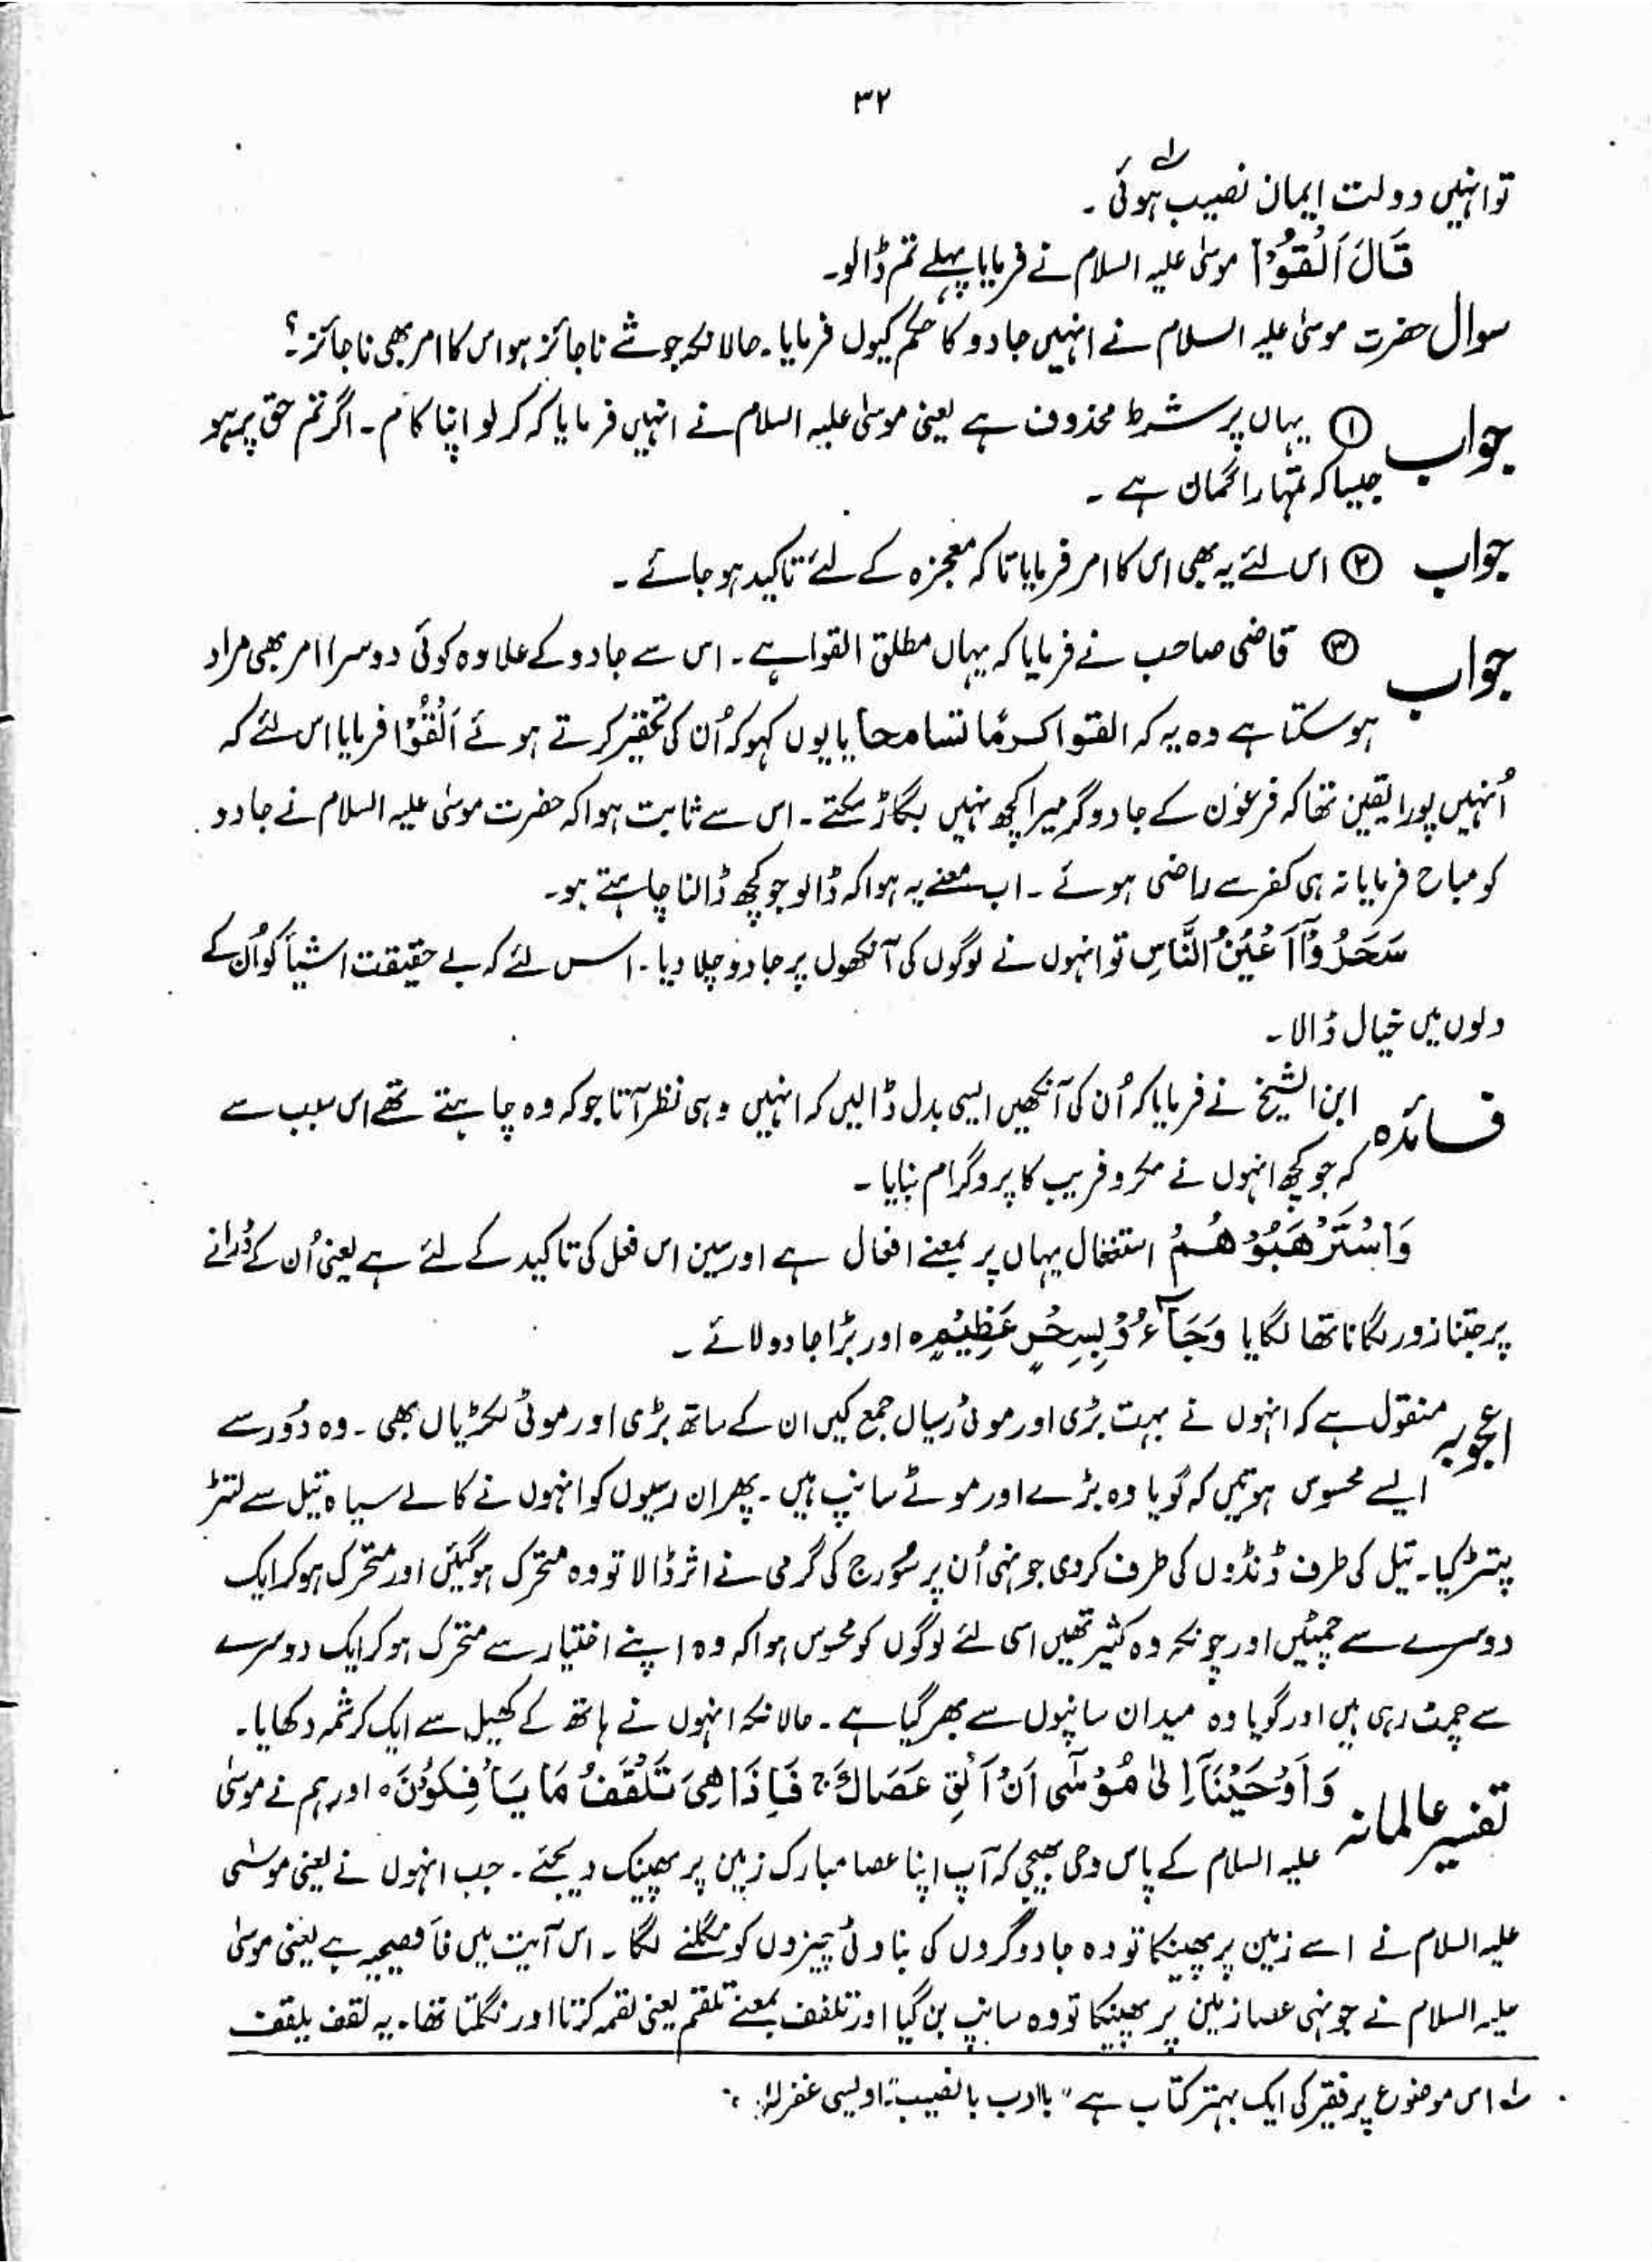 ۳۲
تو انہیں دولت ایمان نصیب ہوئی ۔ ؎۱
قَالَ اَلْقُوْا موسیٰ علیہ السلام نے فرمایا پہلے تم ڈالو۔
سوال حضرت موسیٰ علیہ السلام نے انہیں جادو کا حکم کیوں فرمایا۔ حالانکہ جو شے ناجائز ہو اس کا امر بھی ناجائز ۔؟
جواب ① یہاں پر شرط محذوف ہے یعنی موسیٰ علیہ السلام نے انہیں فرمایا کہ کر لو اپنا کام ۔ اگر تم حق پر ہو
جیسا کہ تمہارا گمان ہے ۔
جواب ② اس لئے یہ بھی اس کا امر فرمایا تا کہ معجزہ کے لئے تاکید ہو جائے ۔
جواب ③ قاضی صاحب نے فرمایا کہ یہاں مطلق القوا ہے ۔ اس سے جادو کے علاوہ کوئی دوسرا امر بھی مراد
ہو سکتا ہے وہ یہ کہ القوا کرمًا تسامحا یا یوں کہو کہ اُن کی تحقیر کرتے ہوئے اَلْقُوْا فرمایا اس لئے کہ
اُنہیں پورا یقین تھا کہ فرعون کے جادوگر میرا کچھ نہیں بگاڑ سکتے ۔ اس سے ثابت ہوا کہ حضرت موسیٰ علیہ السلام نے جادو
کو مباح فرمایا نہ ہی کفر سے راضی ہوئے ۔ اب معنے یہ ہوا کہ ڈالو جو کچھ ڈالنا چاہتے ہو۔
سَحَرُوْآ اَعْیُنَ النَّاسِ تو انہوں نے لوگوں کی آنکھوں پر جادو چلا دیا ۔ اس لئے کہ بے حقیقت اشیأ کو اُن کے
دلوں میں خیال ڈالا ۔
فائدہ ابن الشیخ نے فرمایا کہ اُن کی آنکھیں ایسی بدل ڈالیں کہ انہیں وہی نظر آتا جو کہ وہ چاہتے تھے اس سبب سے
کہ جو کچھ انہوں نے مکر و فریب کا پروگرام بنایا ۔
وَاسْتَرْهَبُوْهُمْ استفعال یہاں پر بمعنے افعال ہے اور سین اس فعل کی تاکید کے لئے ہے یعنی اُن کے ڈرانے
پر جتنا زور لگانا تھا لگایا وَجَآءُوْ بِسِحْرٍ عَظِیْمٍ ہ اور بڑا جادو لائے ۔
اعجوبہ منقول ہے کہ انہوں نے بہت بڑی اور موٹی رسیاں جمع کیں ان کے ساتھ بڑی اور موٹی لکڑیاں بھی ۔ وہ دُور سے
ایسے محسوس ہوتیں کہ گویا وہ بڑے اور موٹے سانپ ہیں ۔ پھر ان رسیوں کو انہوں نے کالے سیاہ تیل سے لتڑ
پتڑ کیا ۔ تیل کی طرف ڈنڈوں کی طرف کر دی جونہی اُن پر سُورج کی گرمی نے اثر ڈالا تو وہ متحرک ہو گئیں اور متحرک ہو کر ایک
دوسرے سے چمٹیں اور چونکہ وہ کثیر تھیں اسی لئے لوگوں کو محسوس ہوا کہ وہ اپنے اختیار سے متحرک ہو کر ایک دوسرے
سے چمٹ رہی ہیں اور گویا وہ میدان سانپوں سے بھر گیا ہے ۔ حالانکہ انہوں نے ہاتھ کے کھیل سے ایک کرشمہ دکھایا۔
تفسیر عالمانہ وَاَوْحَیْنَآ اِلٰی مُوْسٰٓی اَنْ اَلْقِ عَصَاكَ ۚ فَاِذَا هِیَ تَلْقَفُ مَا یَاْفِكُوْنَ ہ اور ہم نے موسیٰ
علیہ السلام کے پاس وحی بھیجی کہ آپ اپنا عصا مبارک زمین پر پھینک دیجئے ۔ جب انہوں نے یعنی موسٰی
علیہ السلام نے اسے زمین پر پھینکا تو وہ جادوگروں کی بناوٹی چیزوں کو نگلنے لگا ۔ اس آیت میں فأ فصیحیہ ہے یعنی موسیٰ
علیہ السلام نے جونہی عصا زمین پر پھینکا تو وہ سانپ بن گیا اور تلقف بمعنے تلقم یعنی لقمہ کرتا اور نگلتا تھا ۔ یہ لقف یلقف
؎۱ اس موضوع پر فقیر کی ایک بہتر کتاب ہے "باادب بانصیب" ۔ اویسی غفرلہٗ